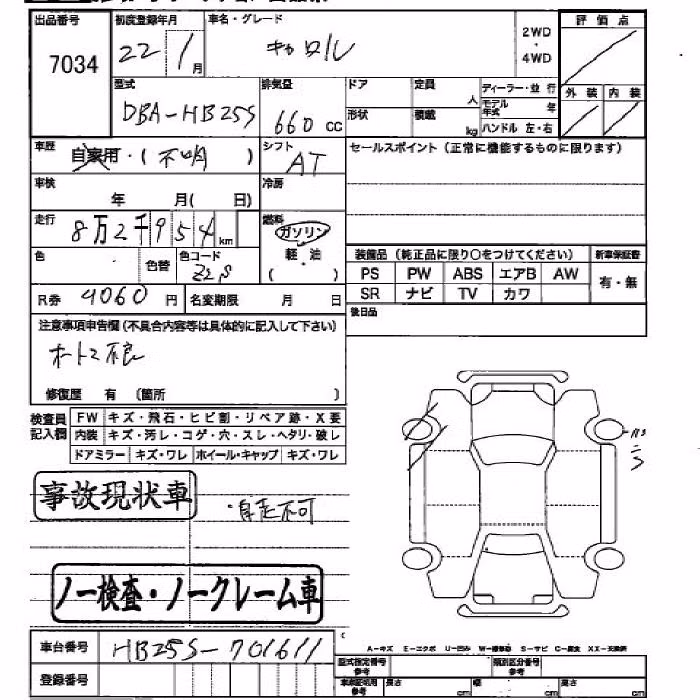 出品番号 初度登録年月 車名・グレード 評価点
7034 22 1月 キャロル 2WD・4WD
型式 排気量 ドア 定員 人 ディーラー・並行 外装 内装
DBA-HB25S 660cc 形状 積載 kg モデル年式 年
ハンドル 左・右
車歴 自家用・(不明) シフト AT セールスポイント(正常に機能するものに限ります)
車検 年 月( 日) 冷房
走行 8万2千954km 燃料 ガソリン
軽・油
( )
色 色替 色コード ZZS 装備品(純正品に限り○をつけてください) 新車保証書
PS PW ABS エアB AW 有・無
R券 9060円 名変期限 月 日 SR ナビ TV カワ
注意事項申告欄(不具合内容等は具体的に記入して下さい) 後日品
オートマ不良
修復歴 有 (箇所 )
検査員記入欄 FW キズ・飛石・ヒビ割・リペア跡・X要
内装 キズ・汚レ・コゲ・穴・スレ・ヘタリ・破レ
ドアミラー キズ・ワレ ホイール・キャップ キズ・ワレ
事故現状車 ・自走不可
ノー検査・ノークレーム車
車台番号 HB25S-701611
A-キズ E-エクボ U-凹ミ W-補修跡 S-サビ C-腐食 XX-交換済
型式指定番号 参考 類別区分番号 参考
登録番号 車庫証明用 参考 長さ cm 幅 cm 高さ cm